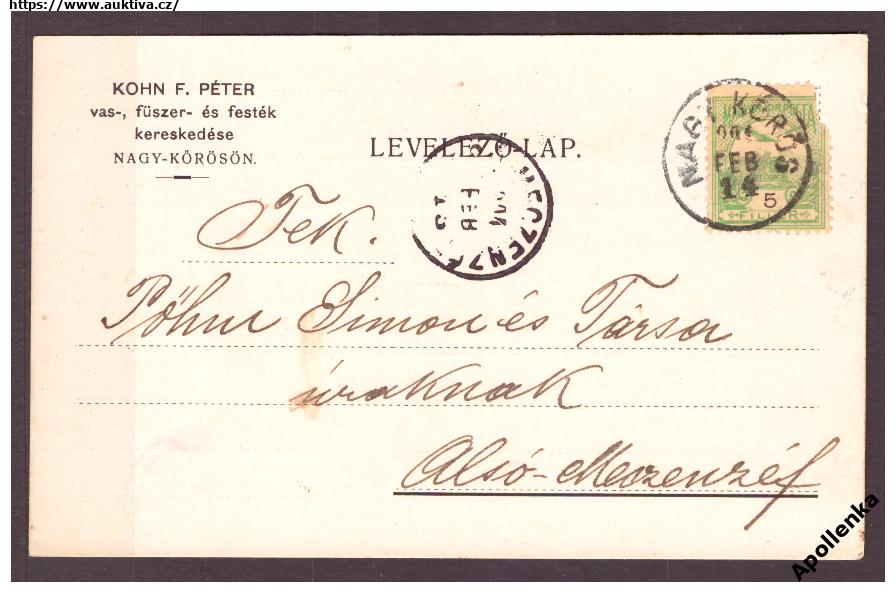 https://www.auktiva.cz/
KOHN F. PÉTER
vas-, füszer- és festék
kereskedése
NAGY-KŐRÖSÖN.
LEVELEZŐ-LAP.
NAGY-KŐRÖS
FEB
14
5
FILLÉR
MECZENZÉF
FEB
15
Tek.
Pöhm Simon és Társa
uraknak
Alsó-Meczenzéf
Apollenka